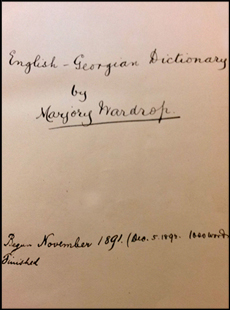 English - Georgian Dictionary
by
Marjory Wardrop.
Began November 1891. (Dec. 5. 1892. 1000 words
Finished